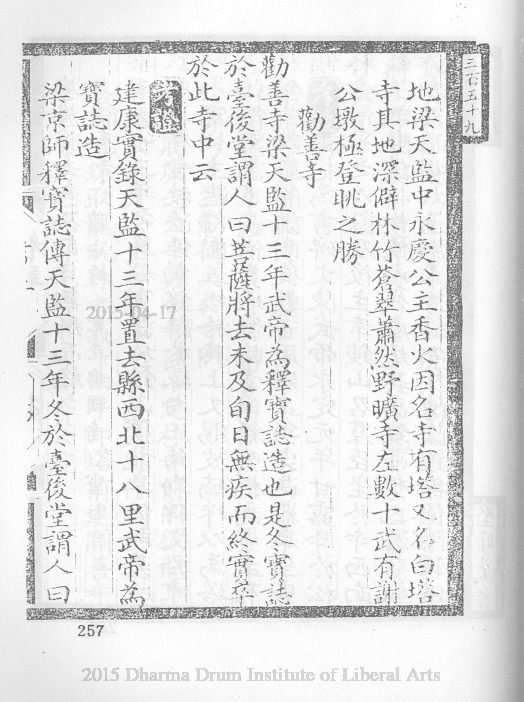 三百五十九
地梁天監中永慶公主香火因名寺有塔又名白塔
寺其地深僻林竹蒼翠蕭然野曠寺左數十武有謝
公墩極登眺之勝
勸善寺
勸善寺梁天監十三年武帝為釋寶誌造也是冬寶誌
於臺後堂謂人曰菩薩將去未及旬日無疾而終實卒
於此寺中云
考證
建康實錄天監十三年置去縣西北十八里武帝為
寶誌造
梁京師釋寶誌傳天監十三年冬於臺後堂謂人曰
2015-04-17
257
2015 Dharma Drum Institute of Liberal Arts